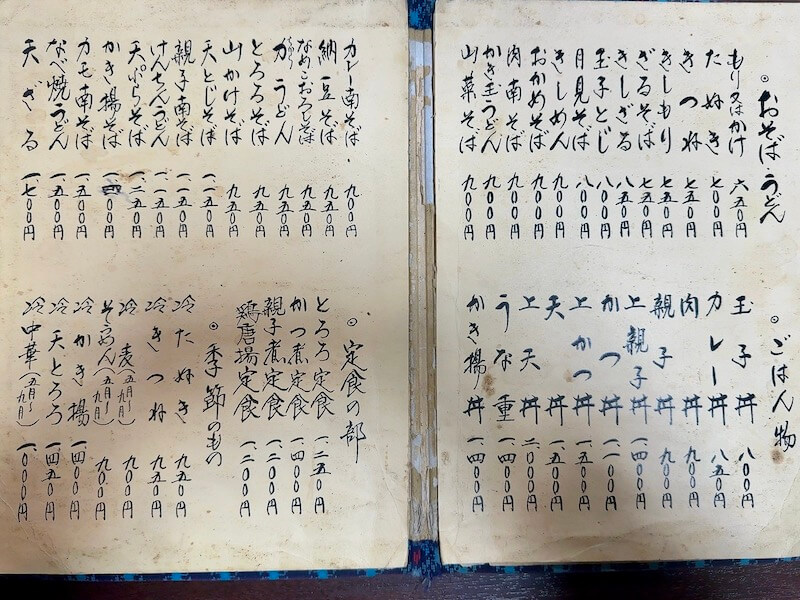 ◎おそば・うどん
もり又はかけ 六五〇円
たぬき 七〇〇円
きつね 七五〇円
きしもり 七五〇円
ざるそば 七五〇円
きしざる 八五〇円
玉子とじ 八〇〇円
月見そば 八〇〇円
きしめん 九〇〇円
おかめそば 九〇〇円
肉南そば 九〇〇円
かき玉うどん 九〇〇円
山菜そば 九〇〇円
◎ごはん物
玉子丼 八〇〇円
カレー丼 八五〇円
肉丼 九〇〇円
親子丼 九〇〇円
上親子丼 一、四〇〇円
かつ丼 一、一〇〇円
上かつ丼 一、五〇〇円
天丼 一、五〇〇円
上天丼 二、〇〇〇円
うな重 一、四〇〇円
かき揚丼 一、四〇〇円
カレー南そば 九〇〇円
納豆そば 九五〇円
なめこおろしそば 九五〇円
力うどん 九五〇円
とろろそば 九五〇円
山かけそば 九五〇円
天とじそば 一、一五〇円
親子南そば 一、一五〇円
けんちんうどん 一、一五〇円
天ぷらそば 一、二五〇円
かき揚そば 一、四〇〇円
カモ南そば 一、五〇〇円
なべ焼うどん 一、五〇〇円
天ざる 一、七〇〇円
◎定食の部
とろろ定食 一、二五〇円
かつ煮定食 一、四〇〇円
親子煮定食 一、二〇〇円
鶏唐揚定食 一、二〇〇円
◎季節のもの
冷たぬき 九五〇円
冷きつね 九五〇円
冷麦(五月〜九月) 九〇〇円
そうめん(五月〜九月) 九〇〇円
冷かき揚 一、四〇〇円
冷天とろろ 一、四五〇円
冷中華(五月〜九月) 一、〇〇〇円